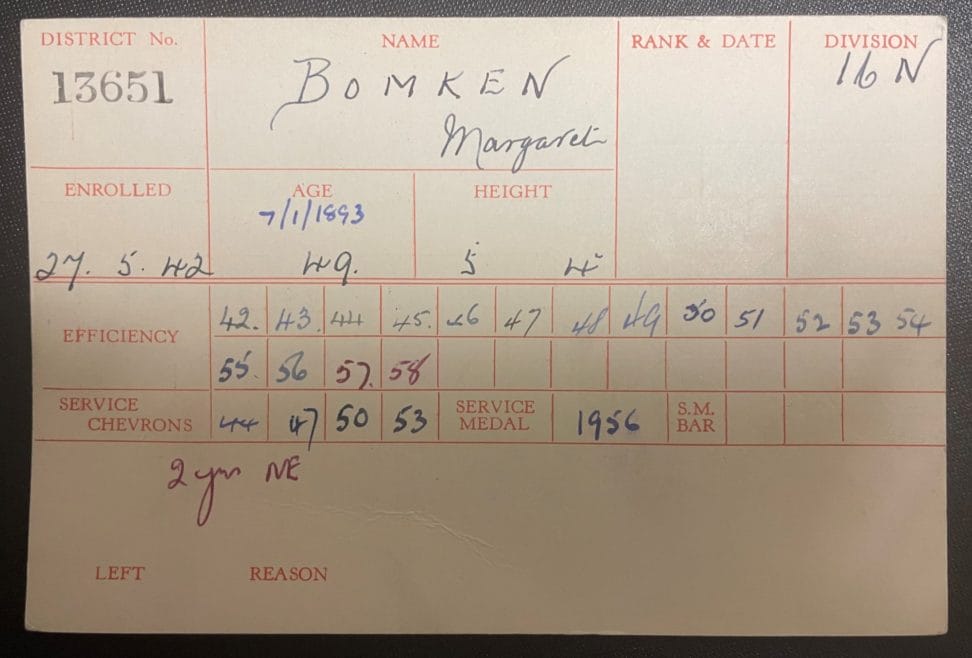 DISTRICT No. NAME RANK & DATE DIVISION
13651 BOMKEN 16 N
Margaret
ENROLLED AGE HEIGHT
7/1/1893
27. 5. 42 49. 5 4
EFFICIENCY 42. 43. 44 45. 46 47 48 49 50 51 52 53 54
55. 56 57. 58
SERVICE CHEVRONS 44 47 50 53 SERVICE MEDAL 1956 S.M. BAR
2 yrs NE
LEFT REASON